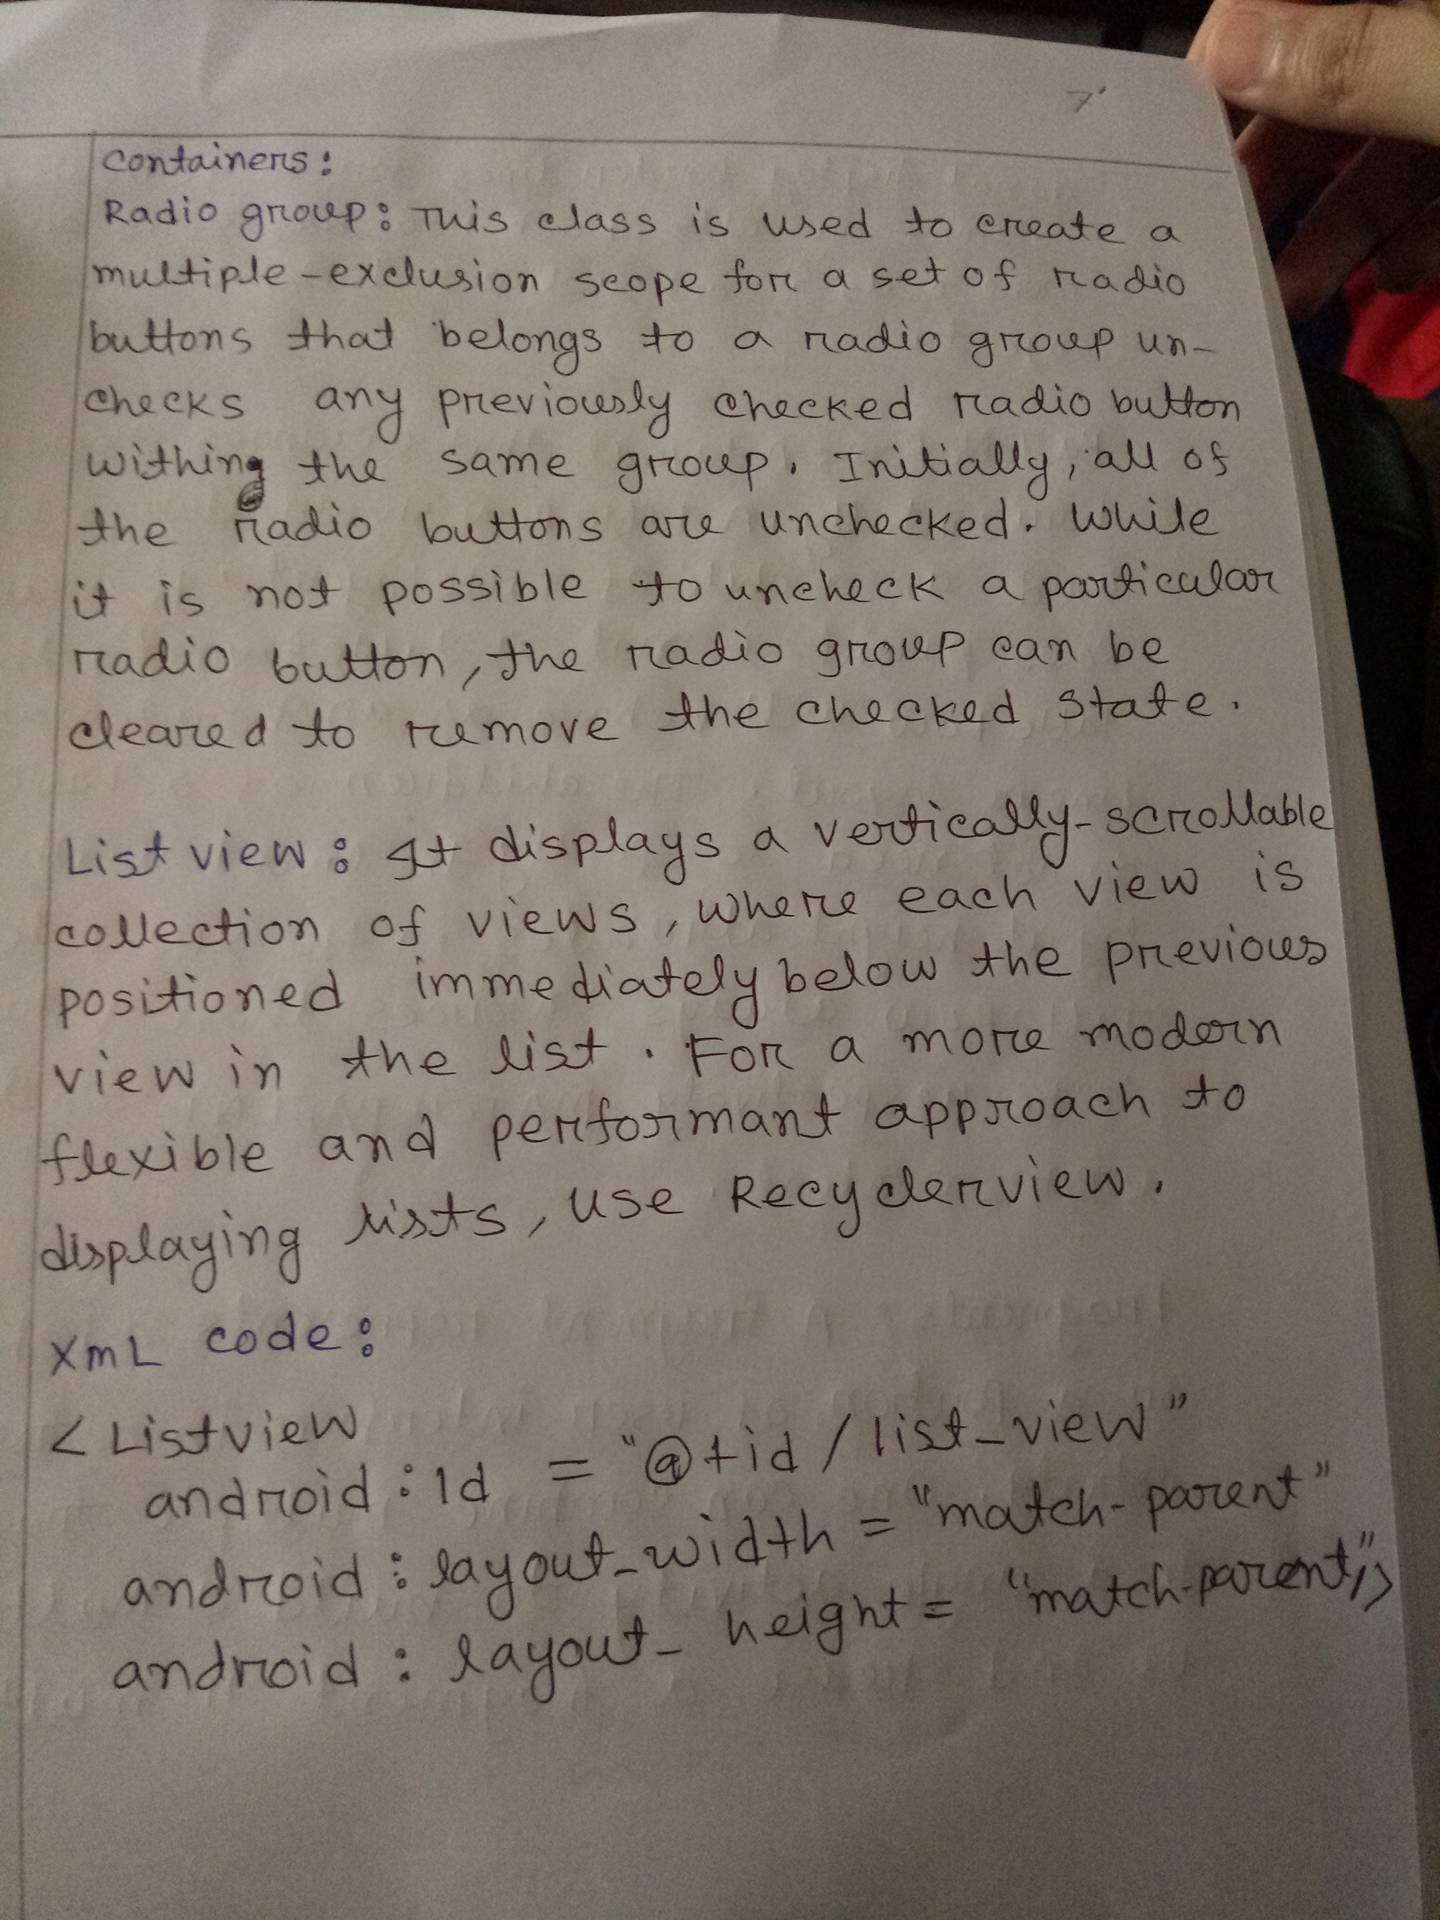 7'
Containers:
Radio group: This class is used to create a
multiple-exclusion scope for a set of radio
buttons that belongs to a radio group un-
checks any previously checked radio button
withing the same group. Initially, all of
the radio buttons are unchecked. While
it is not possible to uncheck a particular
radio button, the radio group can be
cleared to remove the checked state.
List view: It displays a vertically-scrollable
collection of views, where each view is
positioned immediately below the previous
view in the list. For a more modern
flexible and performant approach to
displaying lists, use Recyclerview.
XmL code:
< Listview
android:Id = "@+id/list_view"
android:layout_width = "match-parent"
android:layout_height = "match-parent"/>